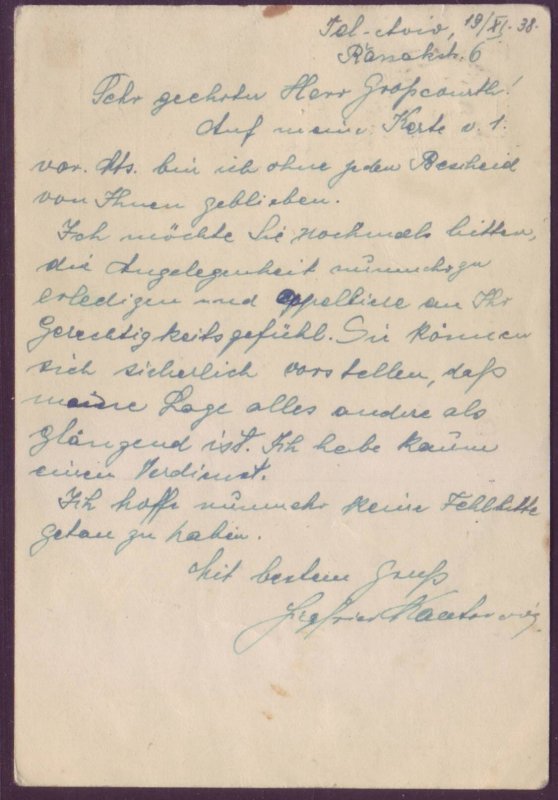 Tel-Aviv, 19/XI-38.
6
Sehr geehrter Herr Großcourth!
Auf meine Karte v. 1.
vor. Mts. bin ich ohne jeden Bescheid
von Ihnen geblieben.
Ich möchte Sie nochmals bitten,
die Angelegenheit nunmehr zu
erledigen und appelliere an Ihr
Gerechtigkeitsgefühl. Sie können
sich sicherlich vorstellen, daß
meine Lage alles andere als
glänzend ist. Ich habe kaum
einen Verdienst.
Ich hoffe nunmehr keine Fehlbitte
getan zu haben.
Mit bestem Gruß
Siegfried Kantorowicz